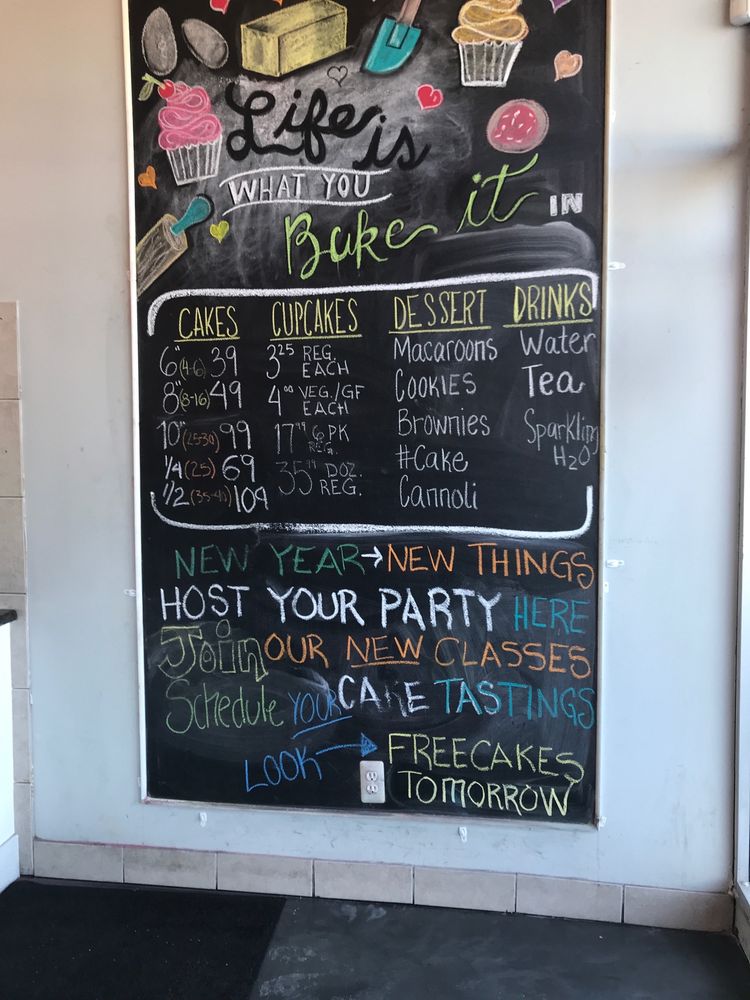 Life is
WHAT YOU
Bake it IN
CAKES
6" (4-6) 39
8" (8-16) 49
10" (25-30) 99
1/4 (25) 69
1/2 (35-40) 109
CUPCAKES
3²⁵ REG. EACH
4⁰⁰ VEG./GF EACH
17⁹⁹ 6 PK REG.
35⁹⁹ DOZ. REG.
DESSERT
Macaroons
COOKIES
Brownies
#Cake
Cannoli
DRINKS
Water
Tea
Sparkling
H2O
NEW YEAR→NEW THINGS
HOST YOUR PARTY HERE
Join OUR NEW CLASSES
Schedule YOUR CAKE TASTINGS
LOOK → FREE CAKES
TOMORROW